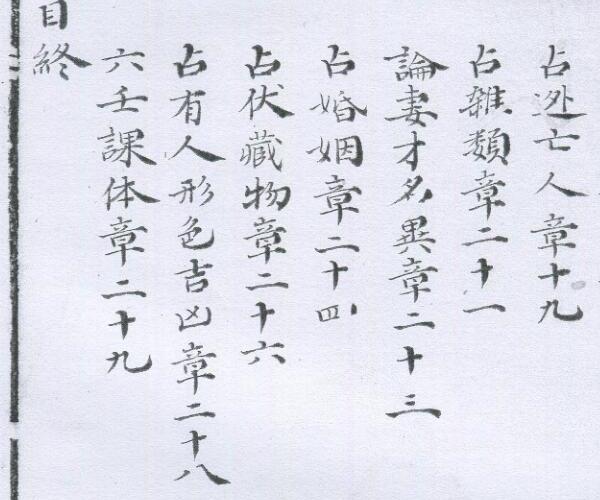 占迯亡人章十九
占雜類章二十一
論妻才名異章二十三
占婚姻章二十四
占伏藏物章二十六
占有人形色吉凶章二十八
六壬課体章二十九
目終